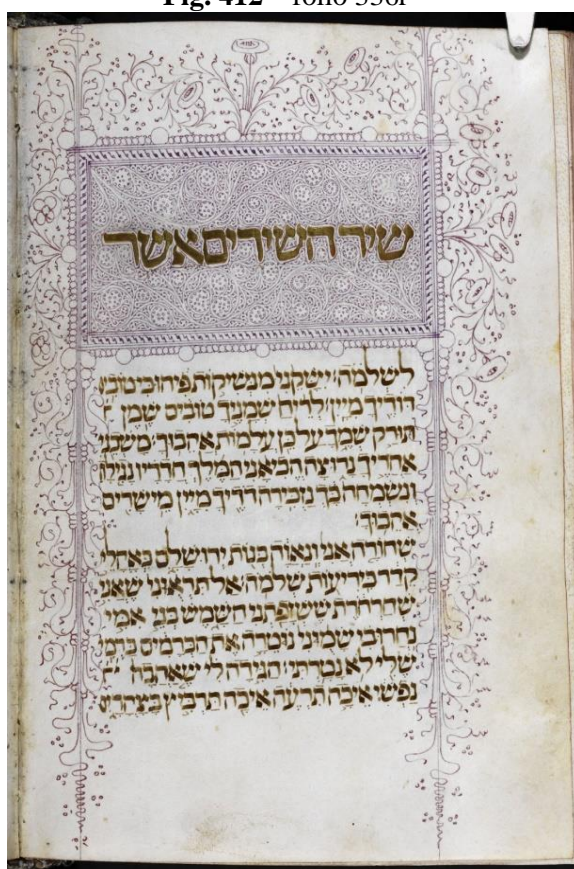 Fig. 412 folio
שיר השירים אשר
לשלמה׳ יישקני מנשיקות פיהו כי טובי׳
דודיך מיין׳ לריח שמניך טובים שמן
תורק שמך על כן עלמות אהבוך׳ משכני
אחריך נרוצה הביאני המלך חדריו נגילה
ונשמחה בך נזכירה דדיך מיין מישרים
אהבוך׳
שחורה אני ונאוה בנות ירושלם כאהלי
קדר כיריעות שלמה׳ אל תראוני שאני
שחרחרת ששזפתני השמש בני אמי
נחרו בי שמוני נוטרה את הכרמים כרמי
שלי לא נטרתי׳ הגידה לי שאהבה
נפשי איכה תרעה איכה תרביץ בצהרים